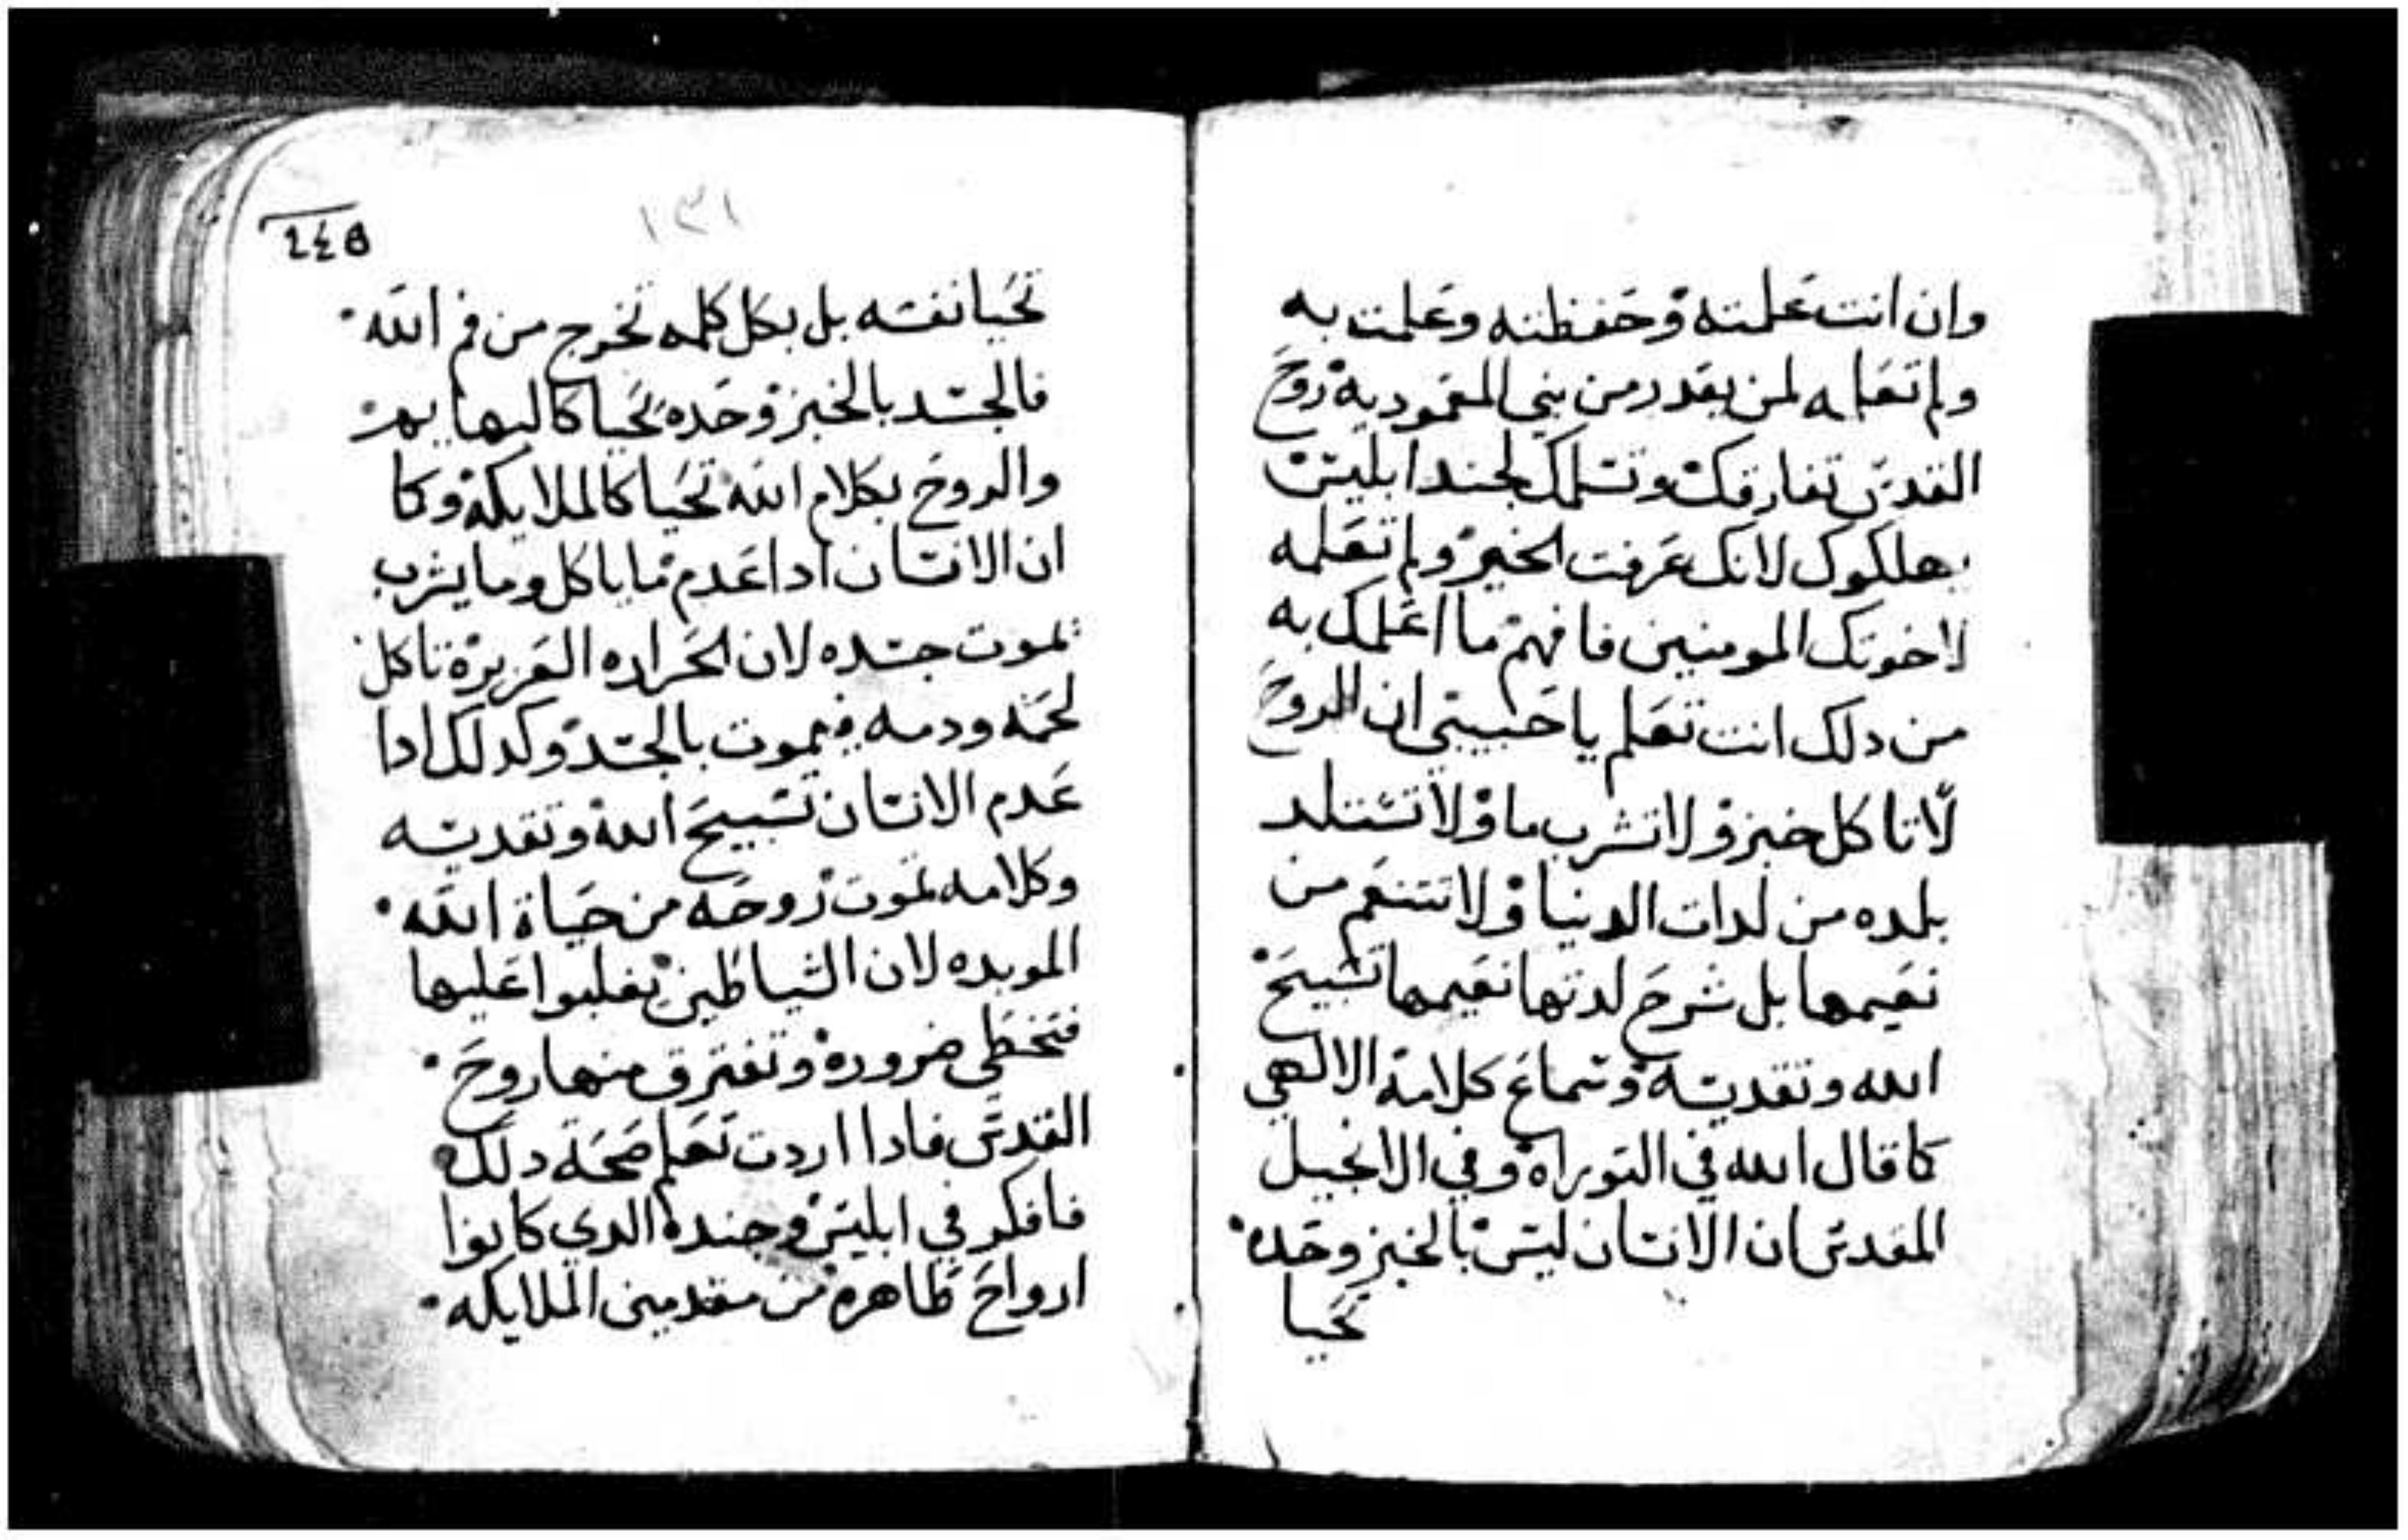 وان انت علمته وحفظته وعلمت به
ولم تعلمه لمن يقدر من بني المعموديه روح
القدس تفارقك وتسلمك لجند ابليس
يهلكوك لانك عرفت الخير ولم تعلمه
لاخوتك المومنين فافهم ما اعلمك به
من دلك انت تعلم يا حبيبي ان الروح
لا تاكل خبز ولا تشرب ما ولا تستلد
بلده من لدات الدنيا ولا تتنعم من
نعيمها بل شرح لدتها نعيمها تسبيح
الله وتقديسه وسماع كلامه الالهي
كما قال الله في التوراه وفي الانجيل
المقدس ان الانسان ليس بالخبز وحده
تحيا
١٣١
تحيا نفسه بل بكل كلمه تخرج من فم الله
فالجسد بالخبز وحده يحيا كالبهايم
والروح بكلام الله تحيا كالملايكة وكما
ان الانسان ادا عدم ما ياكل وما يشرب
تموت جسده لان الحراره الغريزة تاكل
لحمه ودمه فيموت بالجسد وكدلك ادا
عدم الانسان تسبيح الله وتقديسه
وكلامه تموت روحه من حياة الله
الموبده لان الشياطين يغلبوا عليها
فتخطي ضروره وتفترق منها روح
القدس فادا اردت تعلم صحة دلك
فافكر في ابليس وجنده الدي كانوا
ارواح طاهره من مقدمين الملايكه